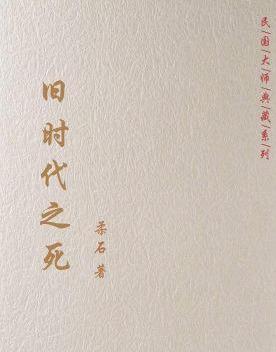 民国大师典藏系列
旧时代之死
柔石 著